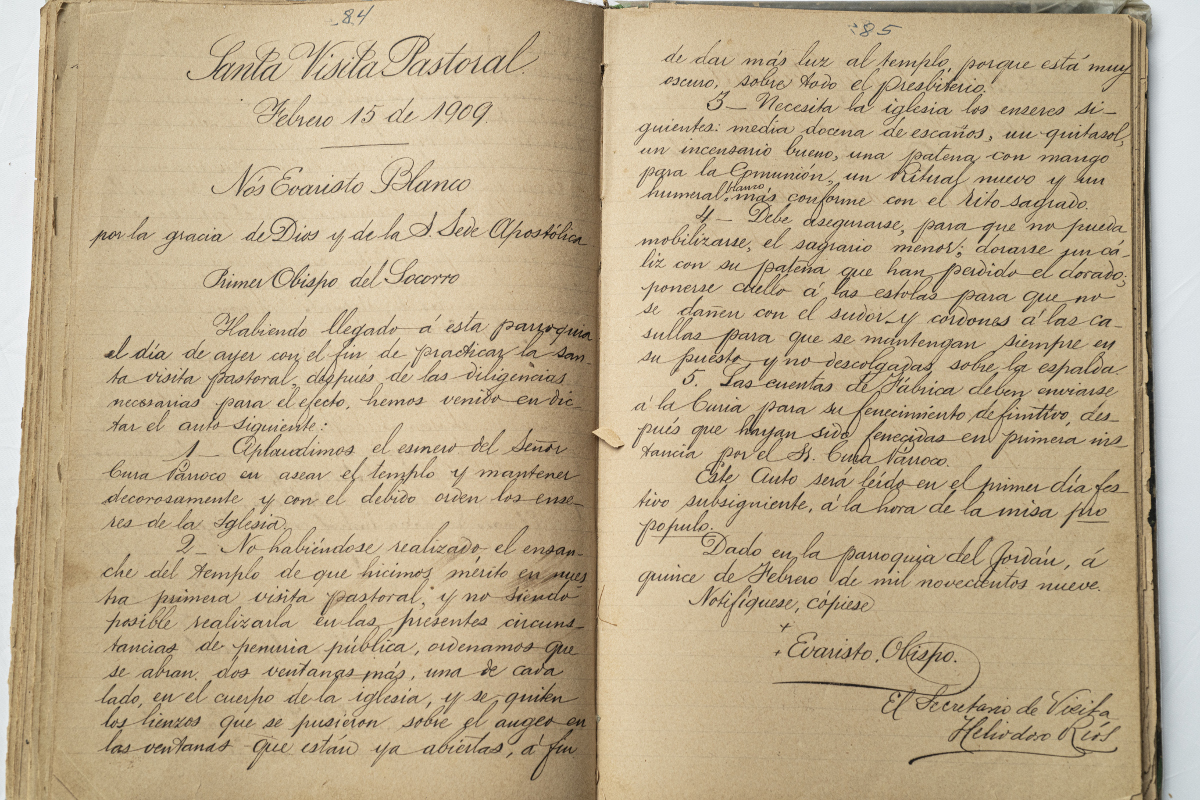 84
Santa Visita Pastoral.
Febrero 15 de 1909.
Nós Evaristo Blanco
por la gracia de Dios y de la S. Sede Apostólica
Primer Obispo del Socorro
Habiendo llegado á esta parroquia
el día de ayer con el fin de practicar la san-
ta visita pastoral, después de las diligencias
necesarias para el efecto, hemos venido en dic-
tar el auto siguiente:
1 — Aplaudimos el esmero del Señor
Cura Párroco en asear el templo y mantener
decorosamente y con el debido orden los ense-
res de la Iglesia.
2 — No habiéndose realizado el ensan-
che del templo de que hicimos mérito en nues
tra primera visita pastoral, y no siendo
posible realizarla en las presentes circuns-
tancias de penuria pública, ordenamos que
se abran dos ventanas más, una de cada
lado, en el cuerpo de la iglesia, y se quiten
los lienzos que se pusieron sobre el angeo en
las ventanas que están ya abiertas, á fin
85
de dar más luz al templo, porque está muy
escuro, sobre todo el presbiterio.
3 — Necesita la iglesia los enseres si-
guientes: media docena de escaños, un quitasol,
un incensario bueno, una patena con mango
para la Comunión, un Ritual nuevo y un
humeral blanco más conforme con el rito sagrado.
4 — Debe asegurarse, para que no pueda
mobilizarse, el sagrario menor; dorarse un cá-
liz con su patena que han perdido el dorado;
ponerse cuello á las estolas para que no
se dañen con el sudor y cordones á las ca-
sullas para que se mantengan siempre en
su puesto y no descolgadas sobre la espalda.
5. Las cuentas de Fábrica deben enviarse
á la Curia para su fenecimiento definitivo, des-
pués que hayan sido fenecidas en primera ins
tancia por el Sr. Cura Párroco.
Este Auto será leido en el primer día fes-
tivo subsiguiente, á la hora de la misa pro
populo.
Dado en la parroquia del Jordán, á
quince de Febrero de mil novecientos nueve.
Notifíquese, cópiese
+ Evaristo, Obispo.
El Secretario de Visita
Heliodoro Ríos